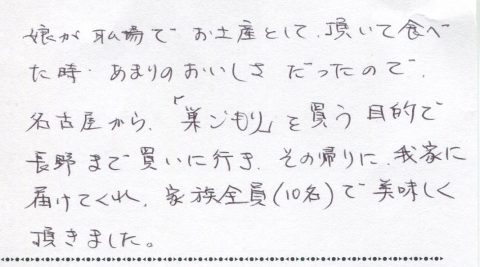 娘が職場でお土産として、頂いて食べ
た時、あまりのおいしさだったので、
名古屋から、「巣ごもり」を買う目的で
長野まで買いに行き、その帰りに、我家に
届けてくれ、家族全員(10名)で美味しく
頂きました。